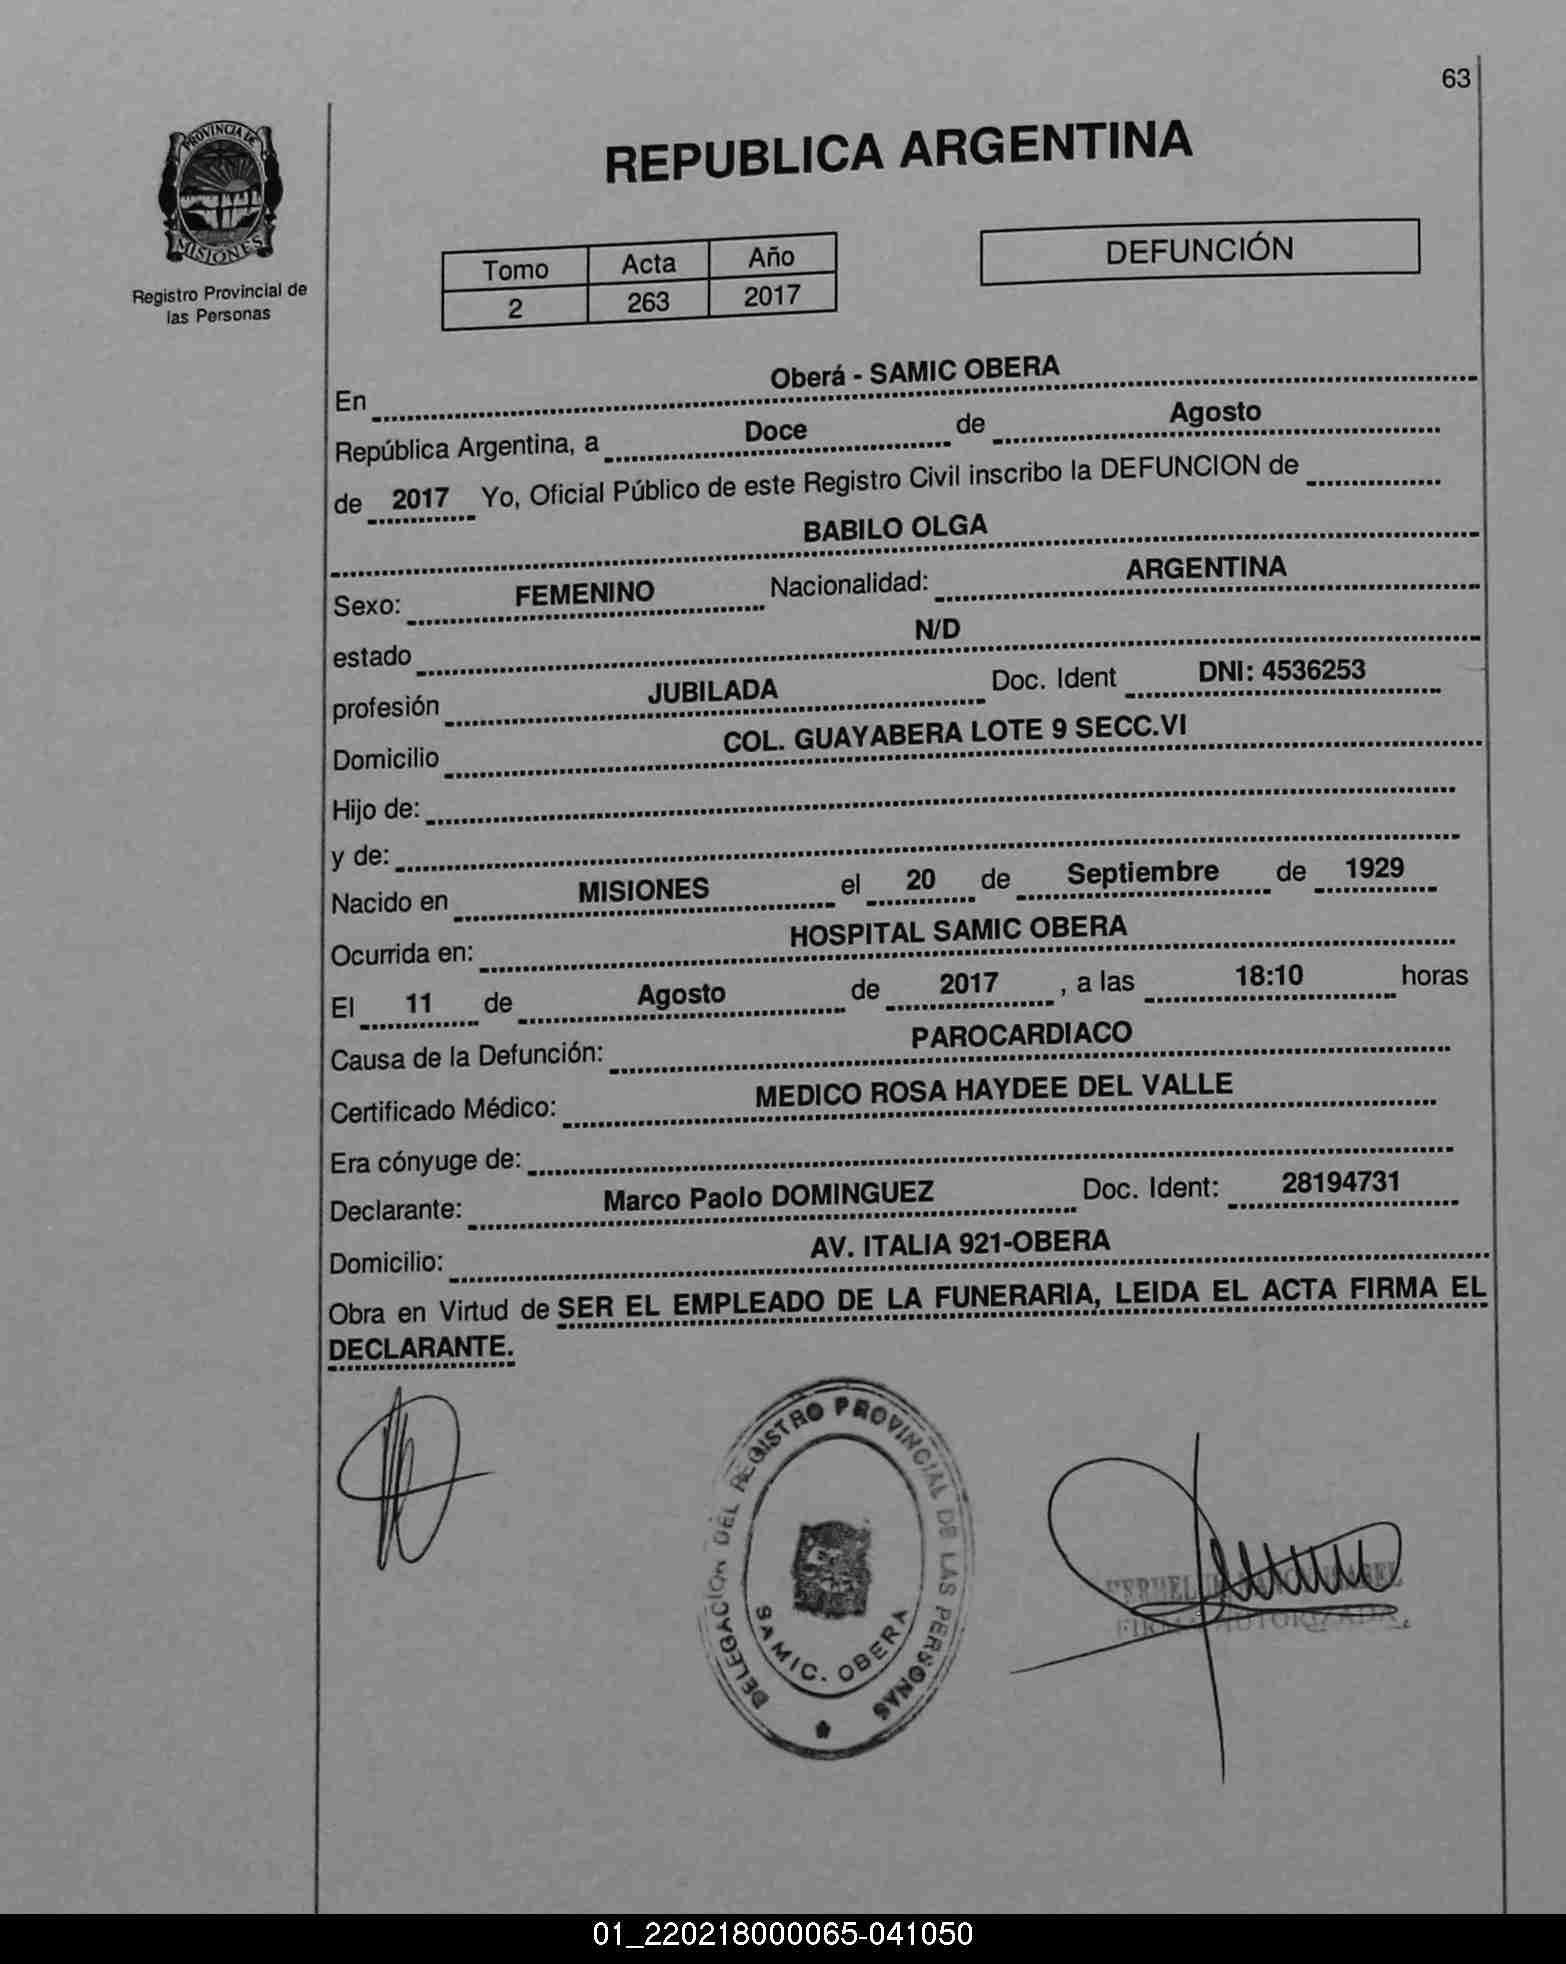 63
PROVINCIA DE
MISIONES
Registro Provincial de
las Personas
REPUBLICA ARGENTINA
Tomo Acta Año
2 263 2017
DEFUNCIÓN
En Oberá - SAMIC OBERA
República Argentina, a Doce de Agosto
de 2017 Yo, Oficial Público de este Registro Civil inscribo la DEFUNCION de
BABILO OLGA
Sexo: FEMENINO Nacionalidad: ARGENTINA
estado N/D
profesión JUBILADA Doc. Ident DNI: 4536253
Domicilio COL. GUAYABERA LOTE 9 SECC.VI
Hijo de:
y de:
Nacido en MISIONES el 20 de Septiembre de 1929
Ocurrida en: HOSPITAL SAMIC OBERA
El 11 de Agosto de 2017 , a las 18:10 horas
Causa de la Defunción: PAROCARDIACO
Certificado Médico: MEDICO ROSA HAYDEE DEL VALLE
Era cónyuge de:
Declarante: Marco Paolo DOMINGUEZ Doc. Ident: 28194731
Domicilio: AV. ITALIA 921-OBERA
Obra en Virtud de SER EL EMPLEADO DE LA FUNERARIA, LEIDA EL ACTA FIRMA EL
DECLARANTE.
DELEGACION DEL REGISTRO PROVINCIAL DE LAS PERSONAS
SAMIC. OBERA
FIRMA AUTORIZADA
01_220218000065-041050